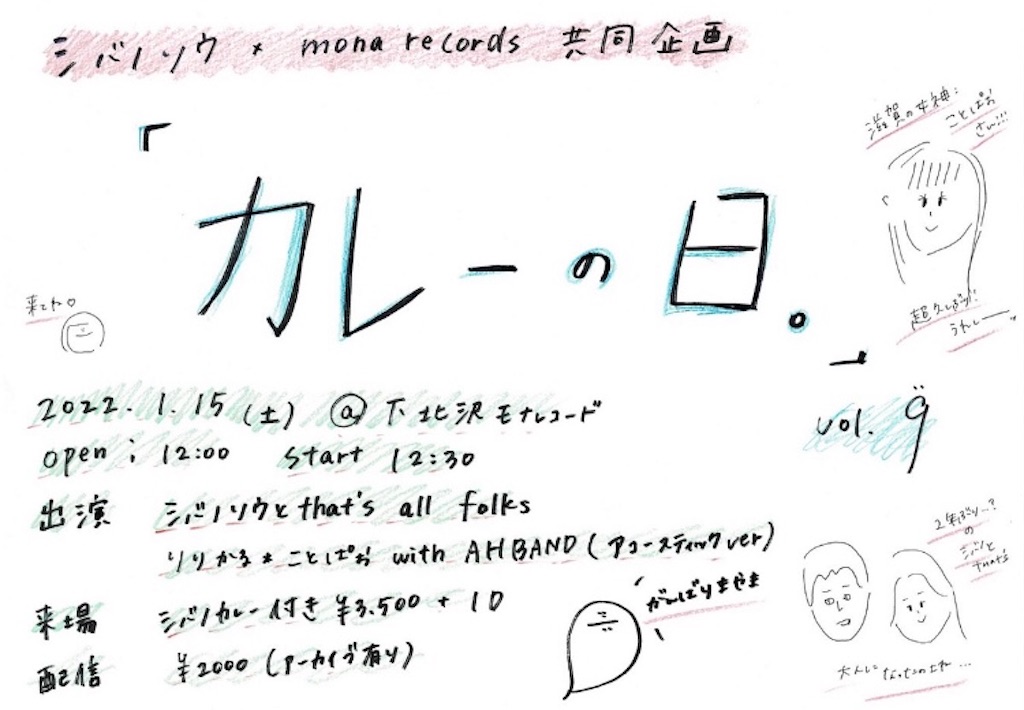 シバノソウ × mona records 共同企画
「カレーの日。」
vol. 9
滋賀の女神:
ことぱお
さん!!!
超久しぶり!!
うれしー
来てね♡
2022. 1. 15 (土) @ 下北沢モナレコード
open : 12:00 start 12:30
出演 シバノソウと that's all folks
りりかる*ことぱお with AHBAND (アコースティックver)
来場 シバノカレー付き ¥3.500 + 1D
配信 ¥2000 (アーカイブ有り)
がんばりまやき
2年ぶり…?
の
シバと
that's
大人に なったのよね…